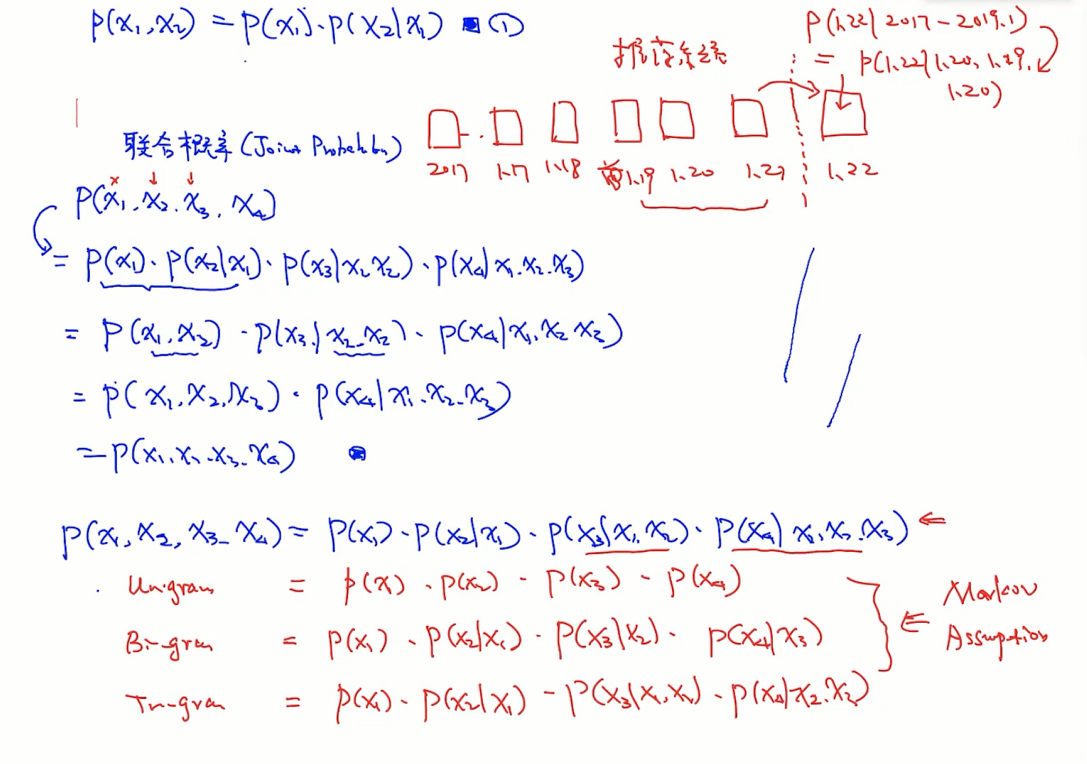 p(x₁,x₂) = p(x₁)·p(x₂|x₁) ①
p(1.22|2017-2019.1)
= p(1.22|1.20, 1.29, 1.20)
2017 1.17 1.18 1.19 1.20 1.21 1.22
联合概率(Joint Probability)
p(x₁.x₂.x₃.x₄)
= p(x₁)·p(x₂|x₁)·p(x₃|x₁x₂)·p(x₄|x₁.x₂.x₃)
= p(x₁,x₂)·p(x₃|x₁.x₂)·p(x₄|x₁,x₂x₃)
= p(x₁,x₂,x₃)·p(x₄|x₁.x₂.x₃)
= p(x₁.x₂.x₃.x₄)
p(x₁,x₂,x₃,x₄) = p(x₁)·p(x₂|x₁)·p(x₃|x₁,x₂)·p(x₄|x₁,x₂,x₃) ⇐
Unigram = p(x₁)·p(x₂)·p(x₃)·p(x₄)
Bi-gram = p(x₁)·p(x₂|x₁)·p(x₃|x₂)·p(x₄|x₃)
Tri-gram = p(x₁)·p(x₂|x₁)·p(x₃|x₁,x₂)·p(x₄|x₂.x₃)
⇐ Markov
Assumption